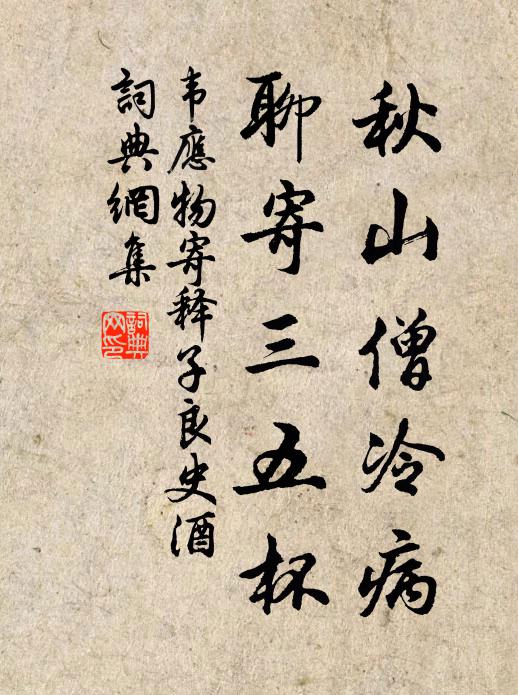 秋山僧冷病
聊寄三五杯
韦應物寄释子良史酒
詞典網集
詞典
网印